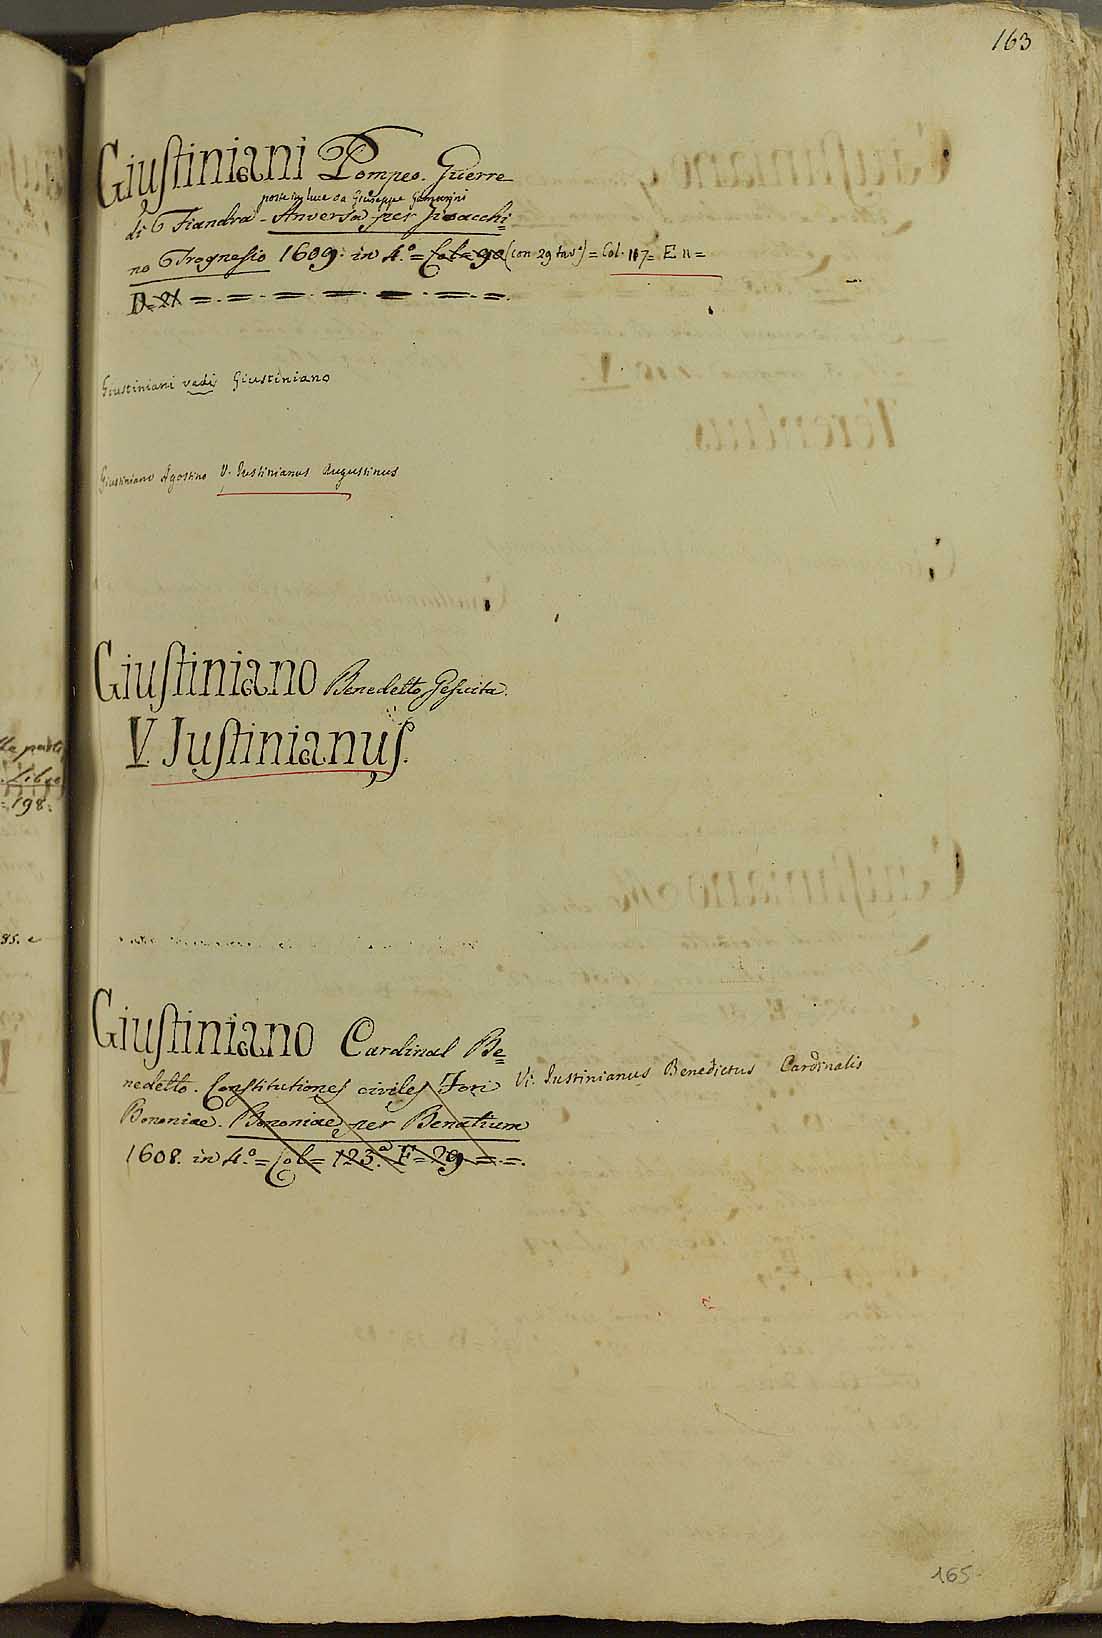 163
Giustiniani Pompeo. Guerre
poste in luce da Giuseppe Gamorini
di Fiandra - Anversa per Gioacchi=
no Trognesio 1609. in 4.º = Col = 90 (con 29 tavᵉ) = Col. 117 = E 11 =
D = 21 = . = . = . = . = . = . = .
Giustiniani vedi Giustiniano
Giustiniano Agostino V. Justinianus Augustinus
Giustiniano Benedetto Gesuita.
V. Justinianus.
Giustiniano Cardinal Be=
nedetto. Constitutiones civiles Fori
V. Justinianus Benedictus Cardinalis
Bononiae. Bononiae per Benatium
1608. in 4.º = Col = 123.ª F = 29 = . = .
165